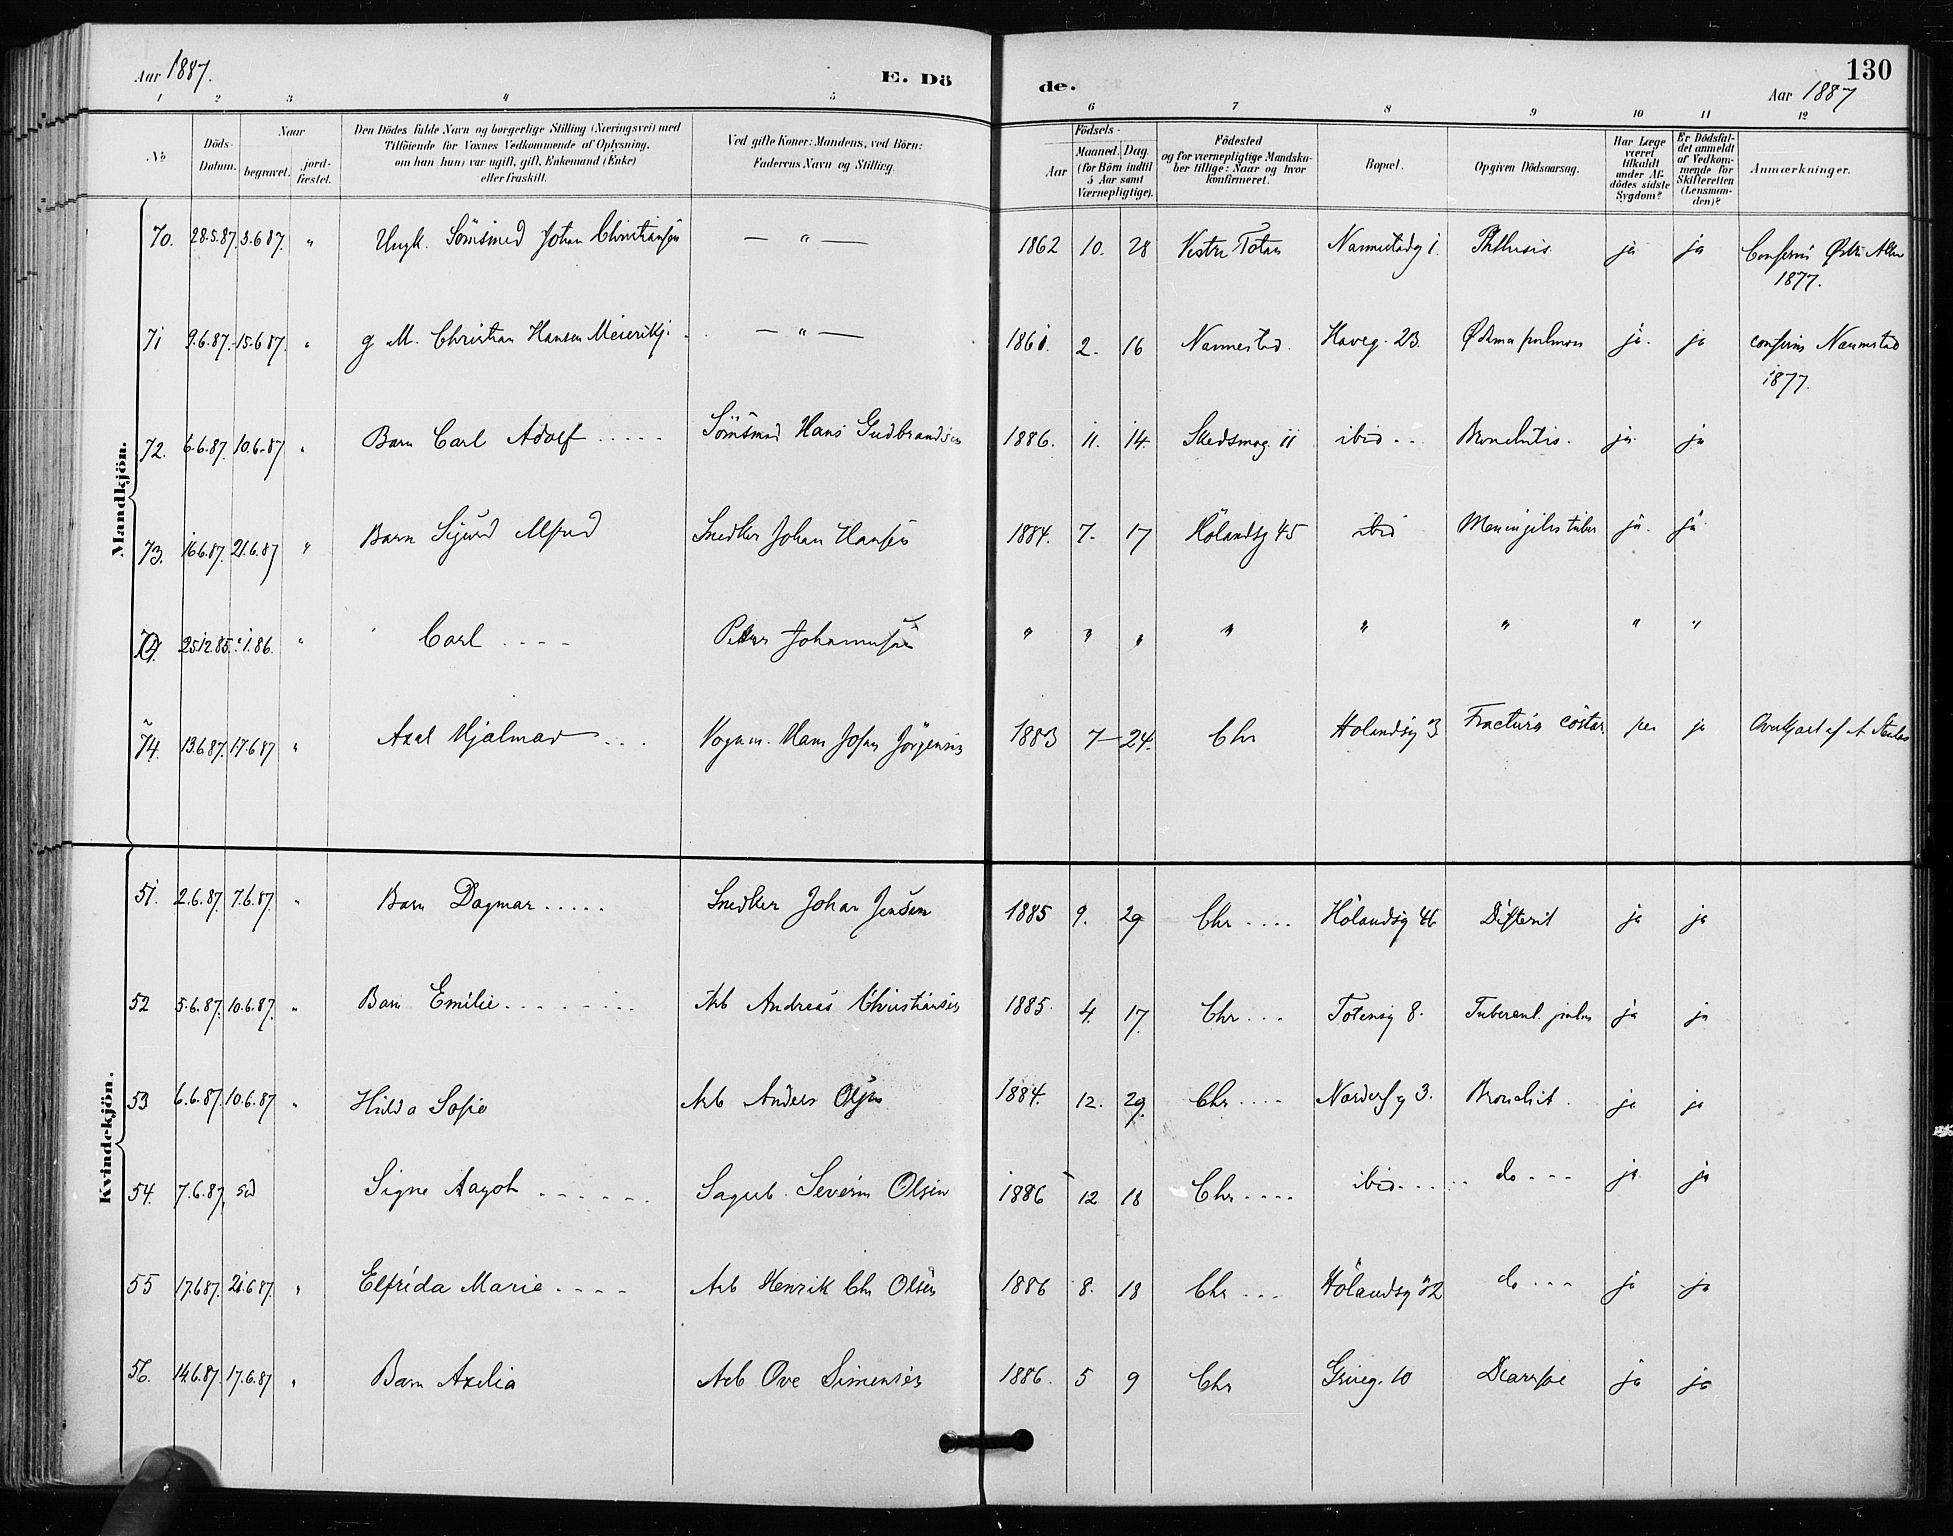 Aar 1887.
E. Dö
de.
130
Aar 1887
1 2 3 4 5 6 7 8 9 10 11 12
No
Döds-Datum.
Naar
begravet.
jord-fæstet.
Den Dödes fulde Navn og borgerlige Stilling (Næringsvei) med
Tilföiende for Voxnes Vedkommende af Oplysning,
om han (hun) var ugift, gift, Enkemand (Enke)
eller fraskilt.
Ved gifte Koner: Mandens, ved Börn:
Faderens Navn og Stilling.
Födsels-
Aar
Maaned. Dag
(for Börn indtil
5 Aar samt
Værnepligtige).
Födested
og for værnepligtige Mandska-
ber tillige: Naar og hvor
konfirmeret.
Bopæl.
Opgiven Dödsaarsag.
Har Læge
været
tilkaldt
under Af-
dödes sidste
Sygdom?
Er Dödsfal-
det anmeldt
af Vedkom-
mende for
Skifteretten
(Lensman-
den)?
Anmærkninger.
Mandkjön.
70. 28.5.87. 3.6 87. " Ungk. Sömsmed Johan Christiansen — " — 1862 10. 28 Vestre Toten Nannestadg 1. Phthisis ja ja Confirm Østre Aker
1877.
71 9.6.87. 15.6 87. " g M. Christian Hansen Meierikj. — " — 1861. 2. 16 Nannestad. Haveg. 23. Ødema pulmon ja. ja confirm Nannestad
1877.
72. 6.6.87. 10.6.87 " Barn Carl Adolf ..... Sömsmed Hans Gudbrandsen 1886. 11. 14. Skedsmog. 11 ibid -- Bronchitis. ja. ja
73. 16.6.87. 21.6.87 " Barn Sigurd Alfred Snedker Johan Hansen 1884. 7. 17 Hölandsg 45 ibid Meningitis tuber ja. ja
74. 25.12.85. 1.86. " Carl ---- Petter Johannesen " " " " " " " "
74. 13.6.87. 17.6 87 " Axel Hjalmar ... Vognm. Hans Johan Jörgensen 1883 7 — 24. Chr Holandsg 3 Fractura costar. ja ja Overkjørt af
Kvindekjön.
51. 2.6.87. 7.6.87. " Barn Dagmar ..... Snedker Johan Jensen 1885 9. 29 Chr .... Hölandsg 46 Difterit ja ja
52 5.6.87. 10.6.87. " Barn Emilie ....... Arb Andreas Christiansen 1885. 4. 17. Chr ... Totensg 8. Tubercul. pulm ja ja
53 6.6.87. 10.6.87 " Hilda Sofie Arb Anders Olsen 1884. 12. 29. Chr .... Norderhg 3. Bronchit. ja ja
54. 7.6.87. Sid Signe Aagot ...... Sagarb. Severin Olsen 1886 12 18 Chr .... ibid ..... do --- ja ja
55 17.6.87. 21.6.87. " Elfrida Marie .... Arb Henrik Chr Olsen 1886 8. 18 Chr ... Hölandsg 32 do --- ja ja
56. 14.6.87. 17.6.87 " Barn Axelia Arb Ove Simensen 1886. 5 9 Chr Griieg. 10 Diarrhoe ja ja